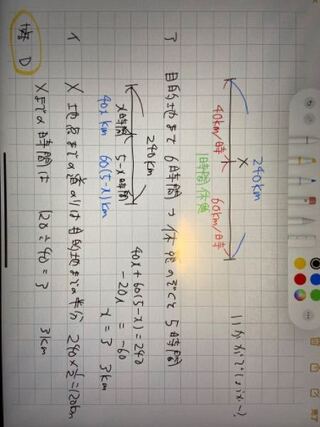 240km
X
40km/時
60km/時
1時間休憩
ア 目的地まで6時間→休憩のぞくと5時間
240km
x時間 5-x時間
40x km 60(5-x)km
40x+60(5-x)=240
-20x = -60
x = 3 3km
イ X地点までの道のりは目的地までの半分 240×1/2=120km
Xまでの時間は 120÷40=3 3km
D